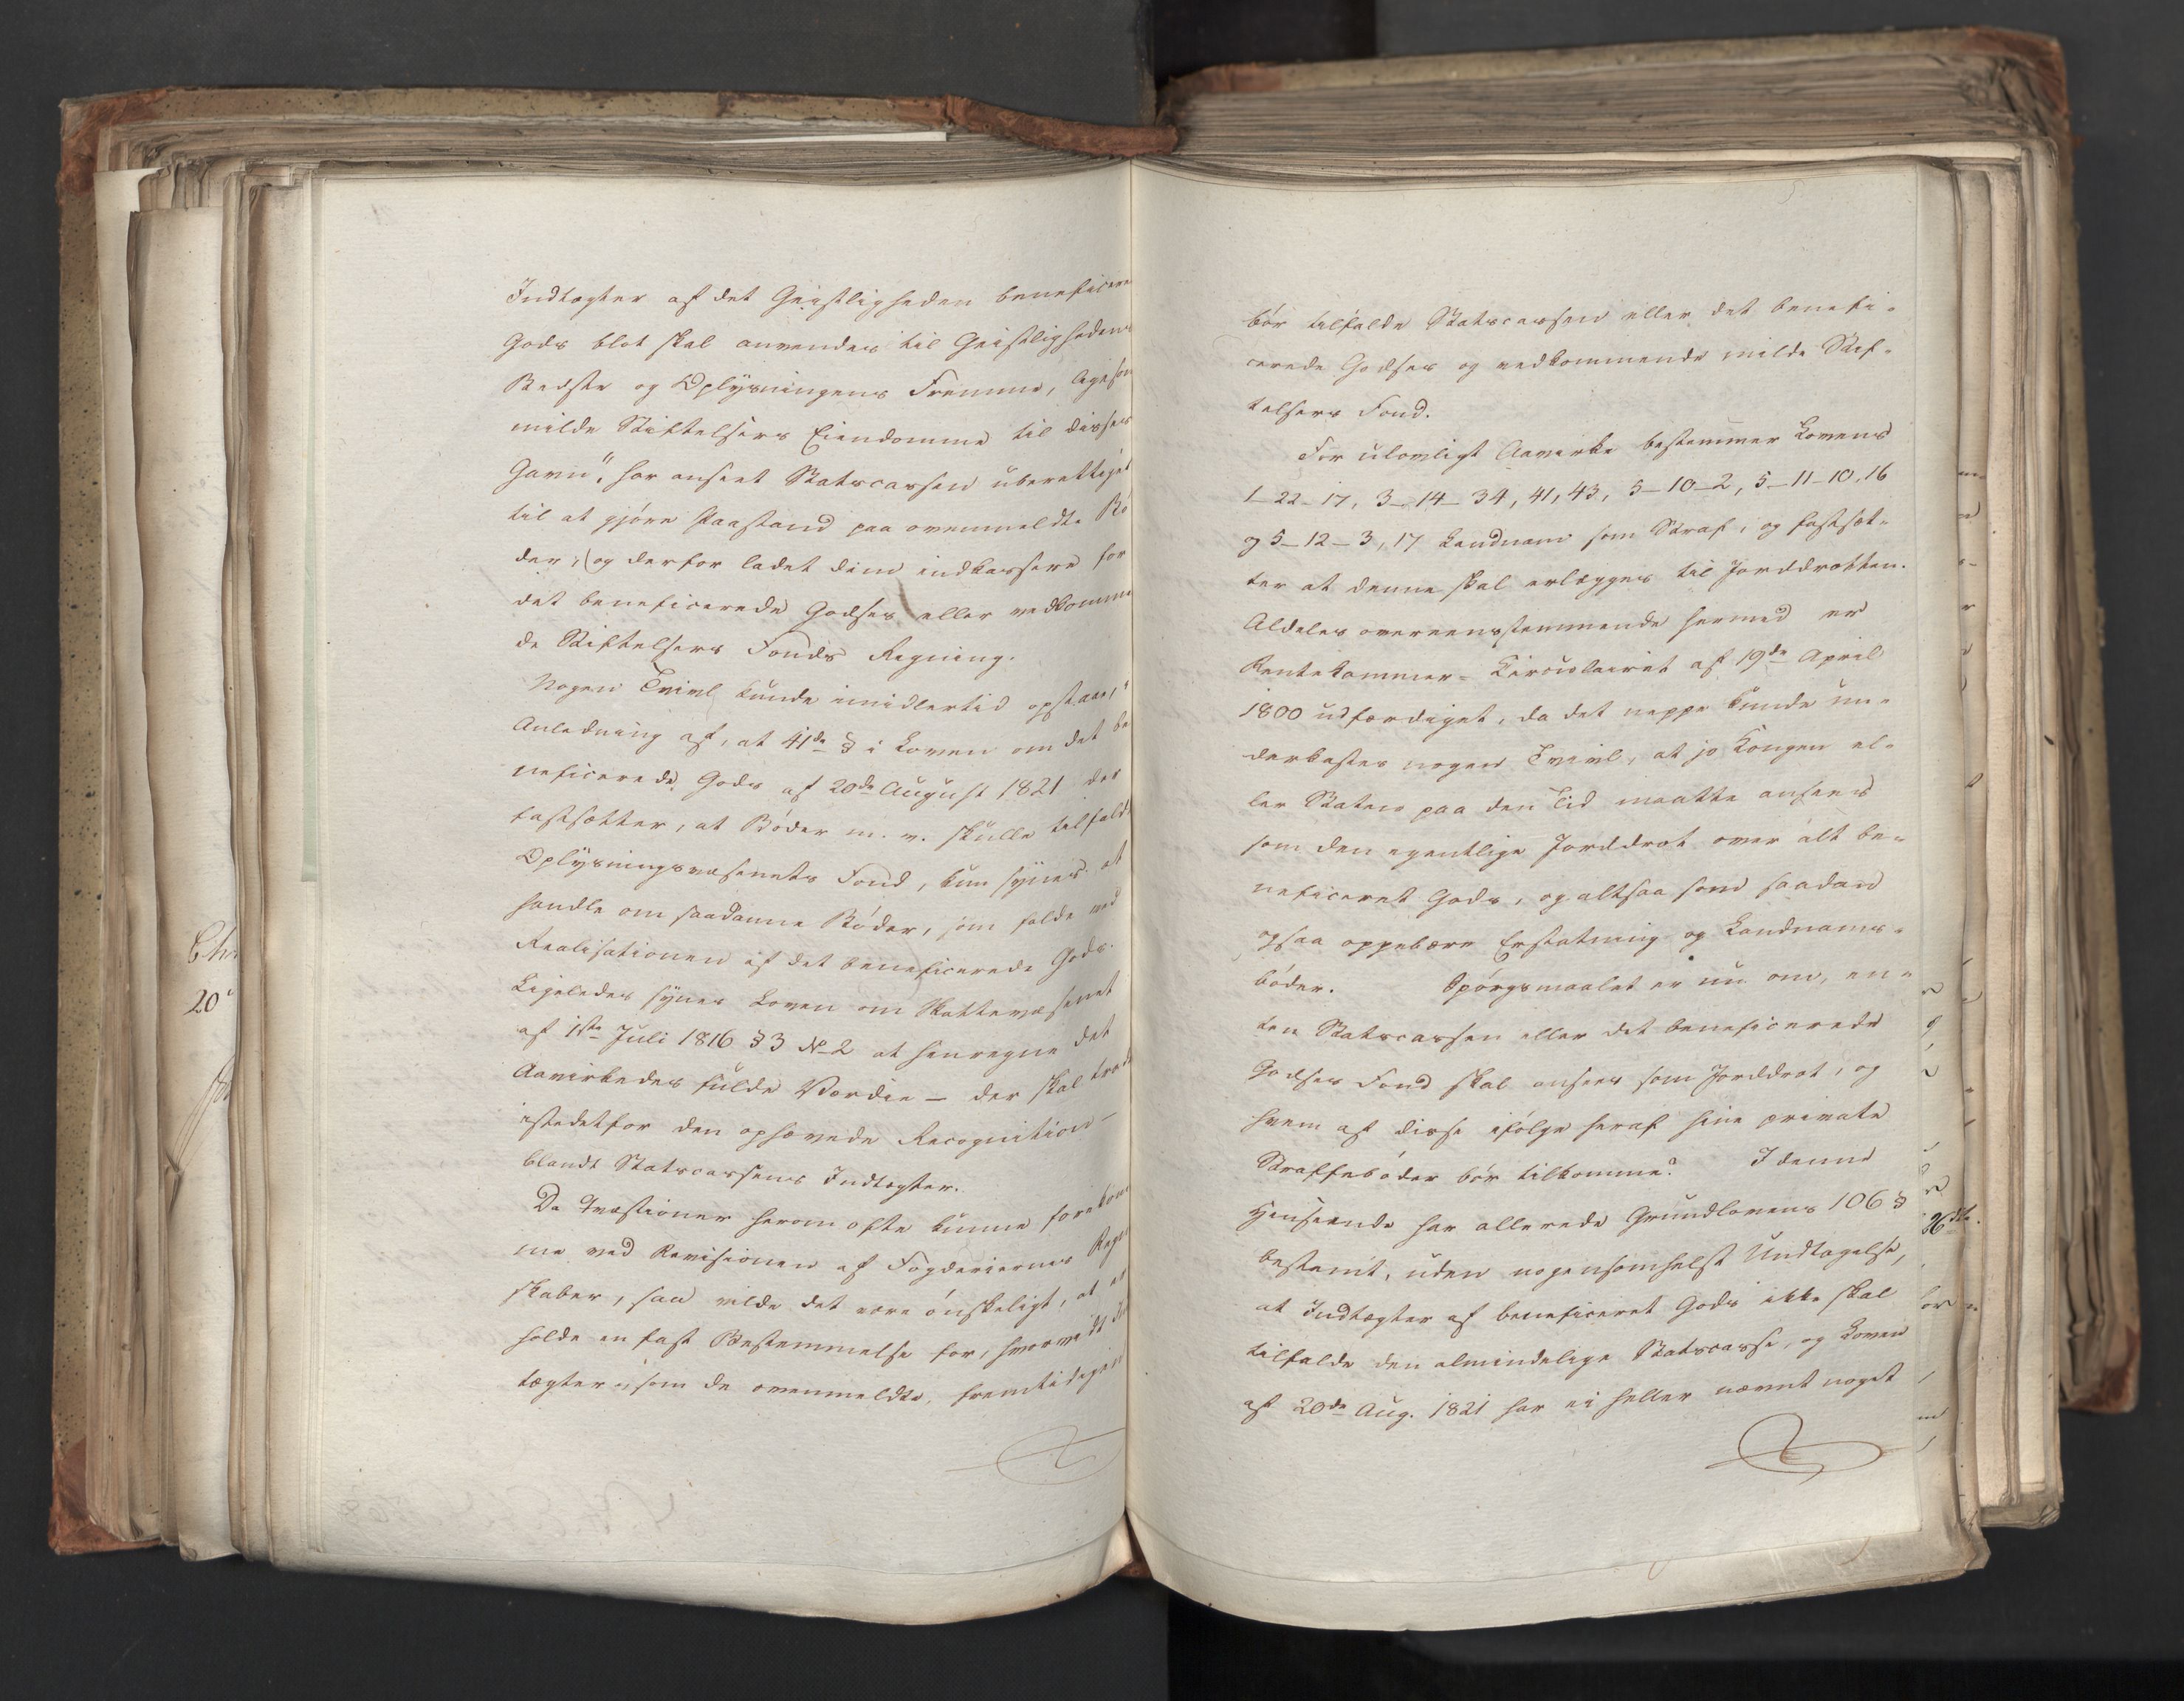 Indtægter af det Geistligheden beneficere
Gods blot skal anvendes til Geistlighedens
Bedste og Oplysningens Fremme, ligesom
milde Stiftelsers Eiendomme til disses
Gavn", har anseet Statscassen uberettiget
til at gjøre Paastand paa ovenmeldte Bö
der, og derfor ladet dem indkassere for
det beneficerede Godses eller vedkomme
de Stiftelsers Fonds Regning.
Nogen Tvivl kunde imidlertid opstaae, i
Anledning af, at 41de § i Loven om det be
neficerede Gods af 20de August 1821 der
fastsætter, at Böder m. v. skulle tilfalde
Oplysningsvæsenets Fond, kun synes at
handle om saadanne Böder, som falde ved
Realisationen af det beneficerede Gods.
Ligeledes synes Loven om Skattevæsenet
af 1ste Juli 1816 § 3 No 2 at henregne det
Aavirkedes fulde Værdie – der skal træde
istedetfor den ophævede Recognition –
blandt Statscassens Indtægter.
Da Qvæstioner herom ofte kunne forekom
me ved Revisionen af Fogderiernes Regn
skaber, saa vilde det være önskeligt, at er
holde en fast Bestemmelse for, hvorvidt Ind
tægter, som de ovenmeldte, fremtidigen
bör tilfalde Statscassen eller det benefi-
cerede Godses og vedkommende milde Stif-
telsers Fond.
For ulovligt Aavirke bestemmer Lovens
1–22–17, 3–14–34, 41, 43, 5–10–2, 5–11–10, 16
og 5–12–3, 17 Landnam som Straf, og fastsæt-
ter at denne skal erlægges til Jorddrotten.
Aldeles overeensstemmende hermed er
Rentekammer-Circulairet af 19de April
1800 udfærdiget, da det neppe kunde un-
derkastes nogen Tvivl, at jo Kongen el-
ler Staten paa den Tid maatte ansees
som den egentlige Jorddrot over alt be-
neficeret Gods, og altsaa som saadan
ogsaa oppebære Erstatning og Landnams-
böder. Spörgsmaalet er nu om, en-
ten Statscassen eller det beneficerede
Godses Fond skal ansees som Jorddrot, og
hvem af disse ifölge heraf hine private
Straffeböder bör tilkomme? I denne
Henseende har allerede Grundlovens 106 §
bestemt, uden nogensomhelst Undtagelse,
at Indtægter af beneficeret Gods ikke skal
tilfalde den almindelige Statscasse, og Loven
af 20de Aug. 1821 har ei heller nævnt noget